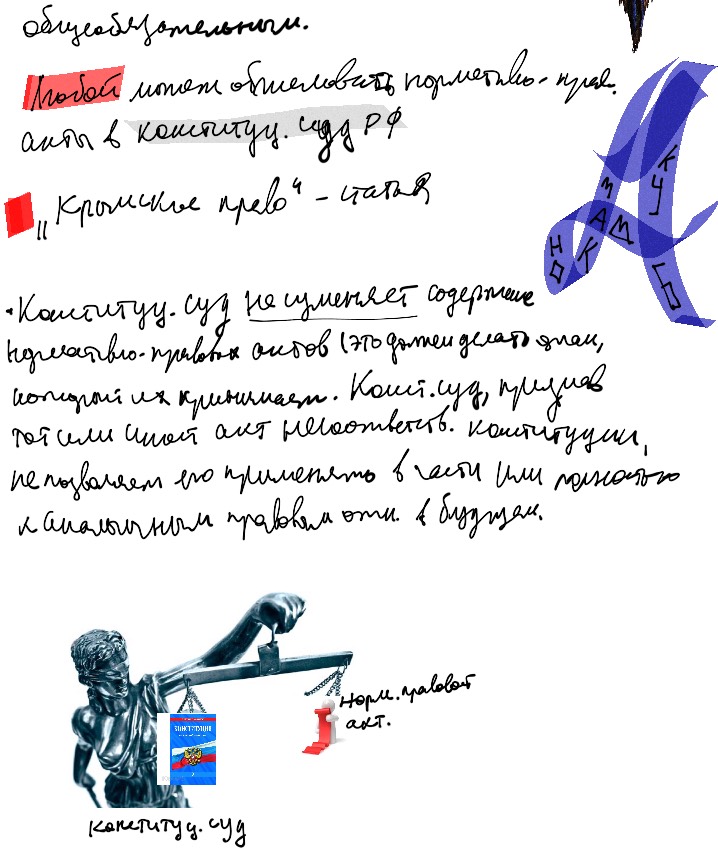 общеобязательным.
Любой может обжаловать норметивно-прав.
акты в конституц. суд РФ
"Крымское право" - статья
• Конституц. суд не изменяет содержание
нормативно-правовых актов (это должен делать орган,
который их принимает. Конст. суд, признав
тот или иной акт несоответств. конституции,
не позволяет его применять в части или полностью
к аналогичным правовым отн. в будущем.
норм. правовой
акт.
КОНСТИТУЦИЯ
конституц. суд